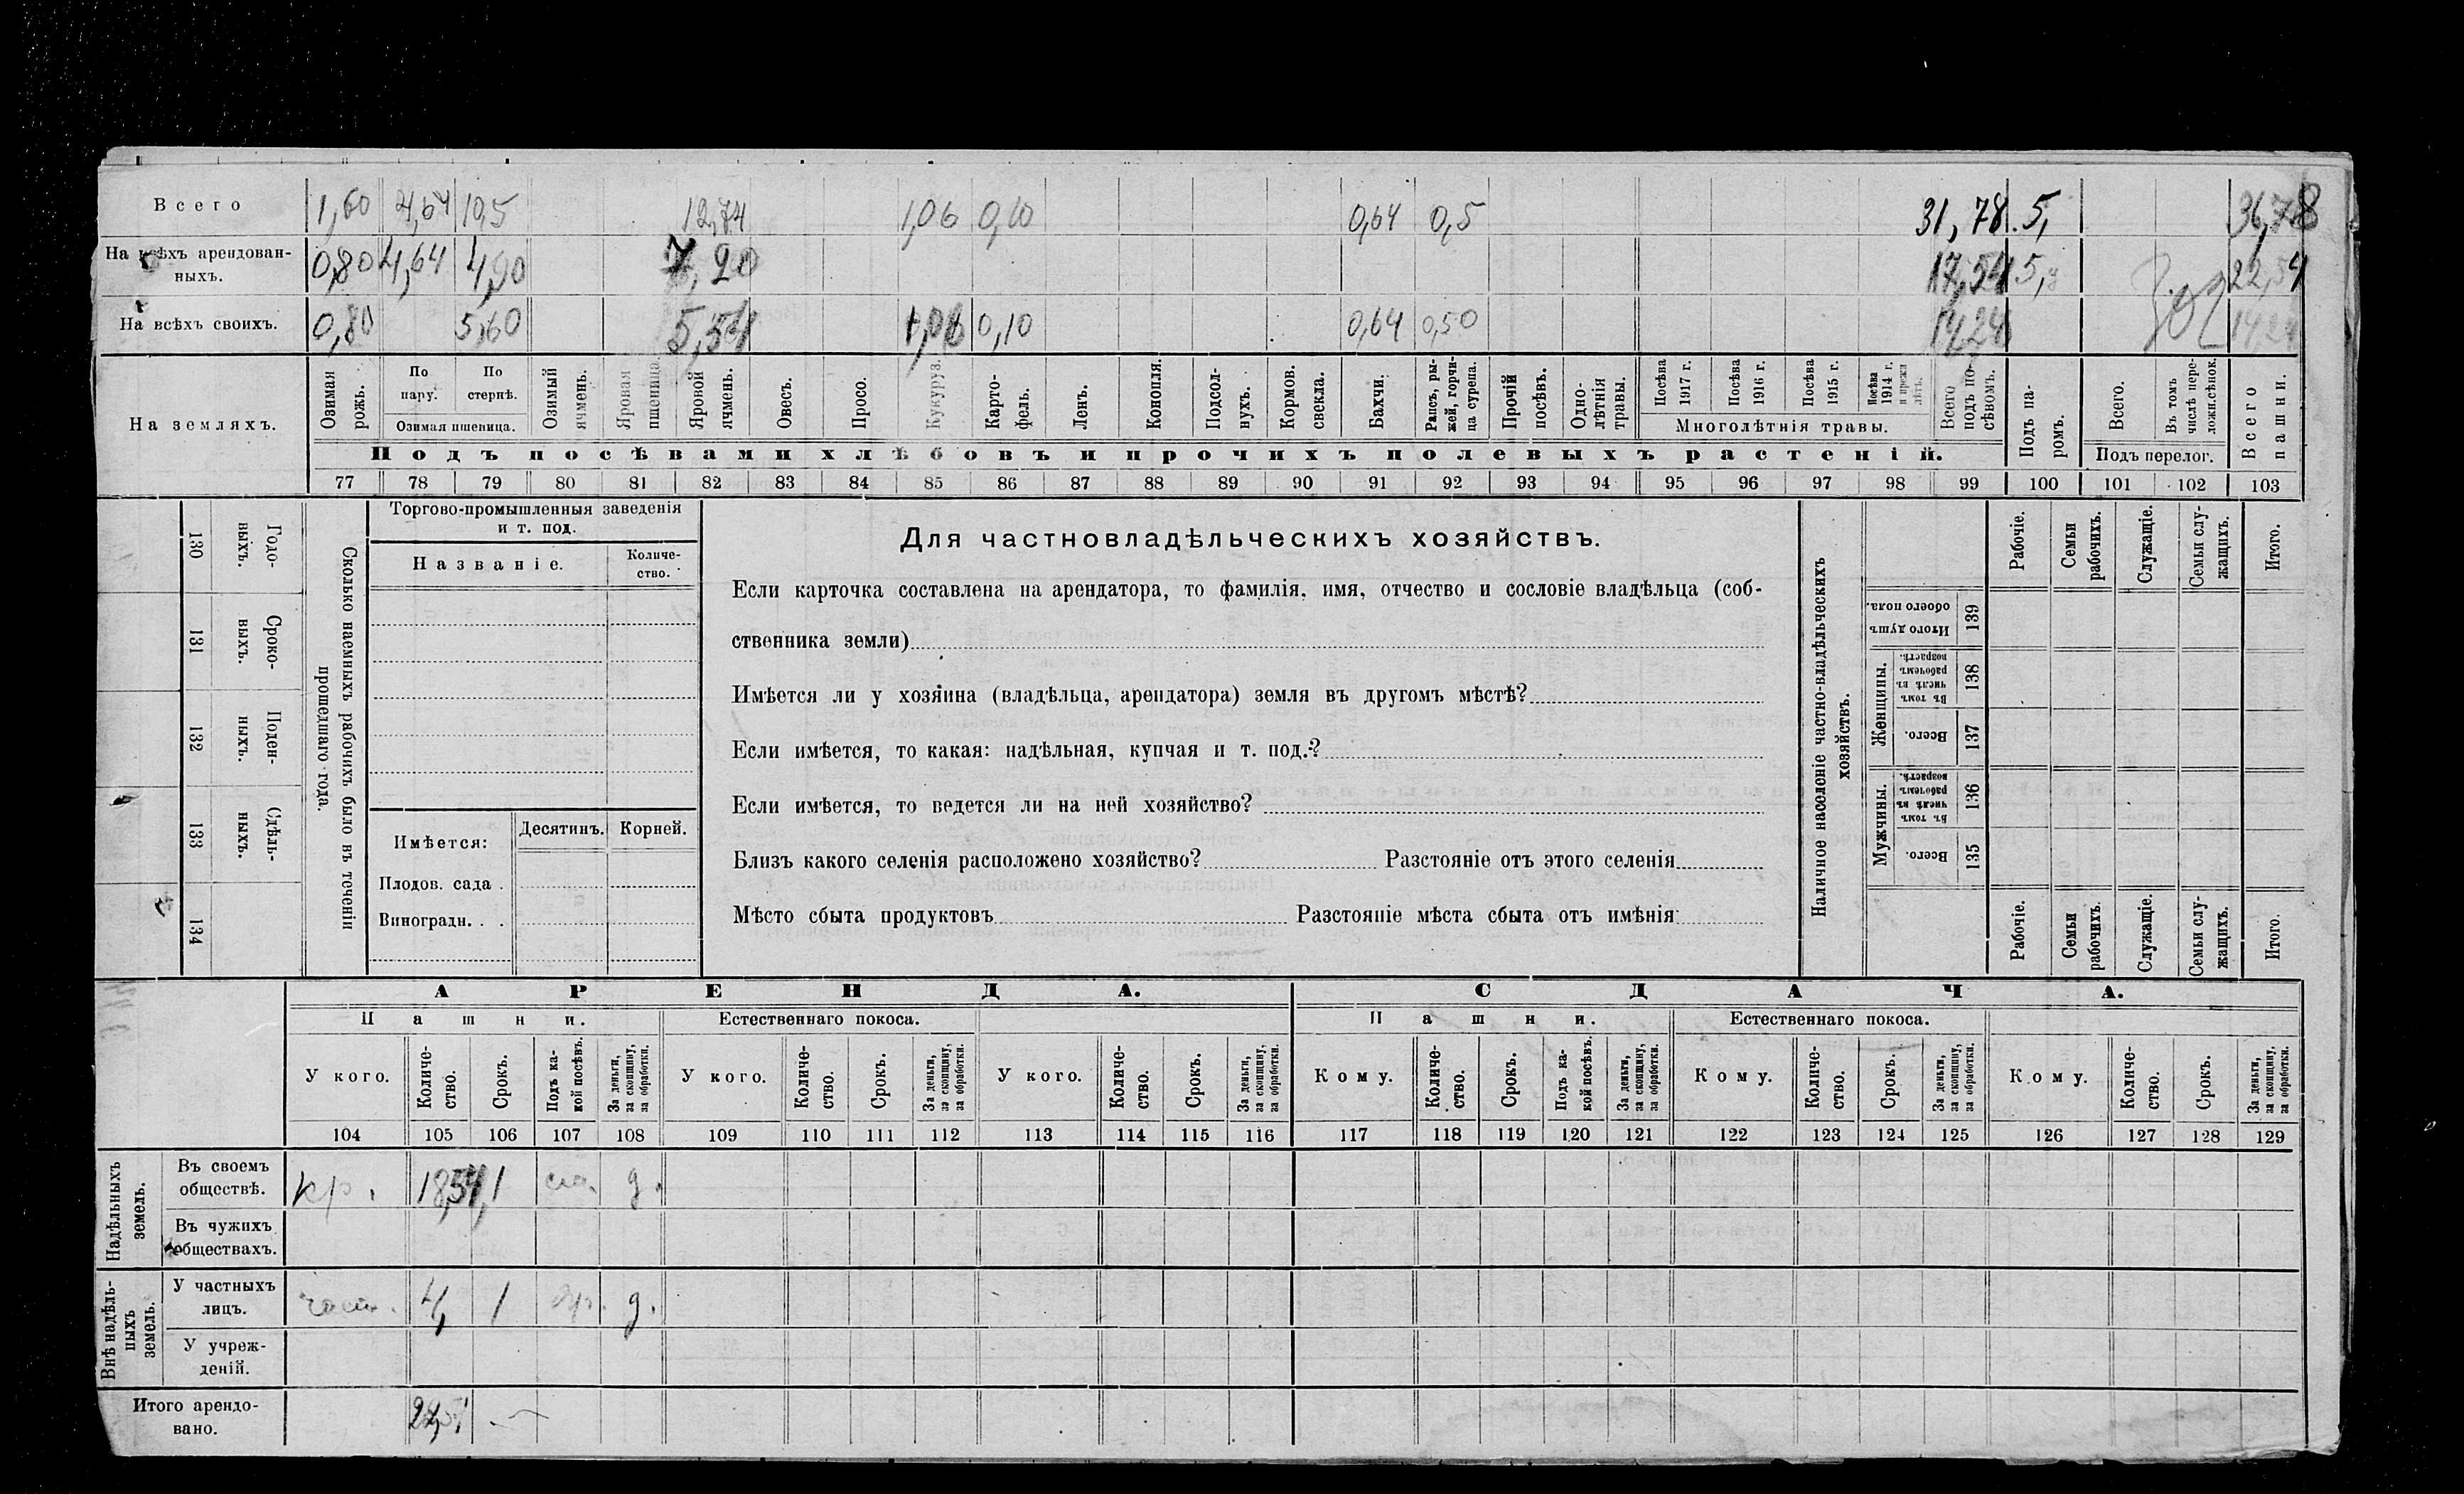 Всего 1,60 4,64 10,5 12,74 1,06 0,10 0,64 0,5 31,78 5, 36,78
На всѣхъ арендован-
ныхъ. 0,80 4,64 4,90 7,20 17,54 5, 22,54
На всѣхъ своихъ. 0,80 5,60 5,54 1,06 0,10 0,64 0,50 14,24 14,24
На земляхъ.
Озимая рожь.
По пару.
По стернѣ.
Озимая пшеница.
Озимый ячмень.
Яровая пшеница.
Яровой ячмень.
Овесъ.
Просо.
Кукуруз.
Карто-
фель.
Ленъ.
Конопля.
Подсол-
нухъ.
Кормов.
свекла.
Бахчи.
Рапсъ, ры-
жей, горчи-
ца сурепа.
Прочій
посѣвъ.
Одно-
лѣтнія
травы.
Посѣва
1917 г.
Посѣва
1916 г.
Посѣва
1915 г.
Посѣва
1914 г.
и прежн
лѣтъ.
Многолѣтнія травы.
Всего
подъ по-
сѣвомъ.
Подъ па-
ромъ.
Всего.
Въ томъ
числѣ пере-
ложн.сѣнок.
Подъ перелог.
Всего
пашни.
Подъ посѣвами хлѣбовъ и прочихъ полевыхъ растеній.
77 78 79 80 81 82 83 84 85 86 87 88 89 90 91 92 93 94 95 96 97 98 99 100 101 102 103
130 Годо-
выхъ.
131 Сроко-
выхъ.
132 Поден-
ныхъ.
133 Сдѣль-
ныхъ.
134
Сколько наемныхъ рабочихъ было въ теченіи
прошедшаго года.
Торгово-промышленныя заведенія
и т. под.
Названіе.
Количе-
ство.
Имѣется:
Десятинъ. Корней.
Плодов. сада .
Виноградн. . .
Для частновладѣльческихъ хозяйствъ.
Если карточка составлена на арендатора, то фамилія, имя, отчество и сословіе владѣльца (соб-
ственника земли)
Имѣется ли у хозяина (владѣльца, арендатора) земля въ другомъ мѣстѣ?
Если имѣется, то какая: надѣльная, купчая и т. под.?
Если имѣется, то ведется ли на ней хозяйство?
Близъ какого селенія расположено хозяйство? Разстояніе отъ этого селенія
Мѣсто сбыта продуктовъ Разстояніе мѣста сбыта отъ имѣнія
Наличное населеніе частно-владѣльческихъ
хозяйствъ.
Рабочіе.
Семьи
рабочихъ.
Служащіе.
Семьи слу-
жащихъ.
Итого.
Итого душъ
обоего пола.
139
Женщины.
Въ томъ
числѣ въ
рабочемъ
возрастѣ.
138
Всего.
137
Мужчины.
Въ томъ
числѣ въ
рабочемъ
возрастѣ.
136
Всего.
135
Рабочіе.
Семьи
рабочихъ.
Служащіе.
Семьи слу-
жащихъ.
Итого.
АРЕНДА. СДАЧА.
Пашни. Естественнаго покоса. Пашни. Естественнаго покоса.
У кого.
Количе-
ство.
Срокъ.
Подъ ка-
кой посѣвъ.
За деньги,
за скопщину,
за обработки.
У кого.
Количе-
ство.
Срокъ.
За деньги,
за скопщину,
за обработки.
У кого.
Количе-
ство.
Срокъ.
За деньги,
за скопщину,
за обработки.
Кому.
Количе-
ство.
Срокъ.
Подъ ка-
кой посѣвъ.
За деньги,
за скопщину,
за обработки.
Кому.
Количе-
ство.
Срокъ.
За деньги,
за скопщину,
за обработки.
Кому.
Количе-
ство.
Срокъ.
За деньги,
за скопщину,
за обработки.
104 105 106 107 108 109 110 111 112 113 114 115 116 117 118 119 120 121 122 123 124 125 126 127 128 129
Надѣльныхъ
земель.
Въ своемъ
обществѣ. кр. 18,54 1 д.
Въ чужихъ
обществахъ.
Внѣ надѣль-
ныхъ
земель.
У частныхъ
лицъ. част. 4, 1 д.
У учреж-
деній.
Итого арендо-
вано.